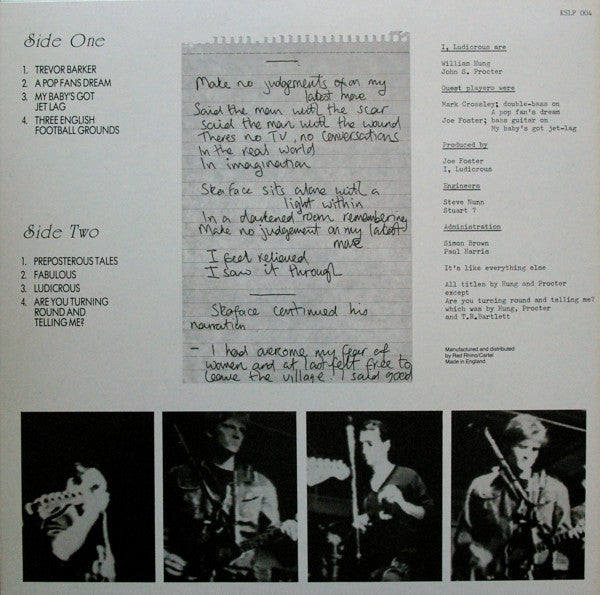 KSLP 004
Side One
1. TREVOR BARKER
2. A POP FANS DREAM
3. MY BABY'S GOT
JET LAG
4. THREE ENGLISH
FOOTBALL GROUNDS
Side Two
1. PREPOSTEROUS TALES
2. FABULOUS
3. LUDICROUS
4. ARE YOU TURNING
ROUND AND
TELLING ME?
Make no judgements of on my
latest move
Said the man with the scar
said the man with the wound
Theres no TV, no conversations
In the real world
In imagination
Skaface sits alone with a
light within
In a darkened room remembering
Make no judgement on my latest
move
I feel relieved
I saw it through
Skaface continued his
narration
- I had overcome my fear of
women and at last felt free to
leave the village. I said good
I, Ludicrous are
William Hung
John S. Procter
Guest players were
Mark Crossley; double-bass on
A pop fan's dream
Joe Foster; bass guitar on
My baby's got jet-lag
Produced by
Joe Foster
I, Ludicrous
Engineers
Steve Nunn
Stuart ?
Administration
Simon Brown
Paul Harris
It's like everything else
All titles by Hung and Procter
except
Are you turning round and telling me?
which was by Hung, Procter
and T.R.Bartlett
Manufactured and distributed
by Red Rhino/Cartel
Made in England